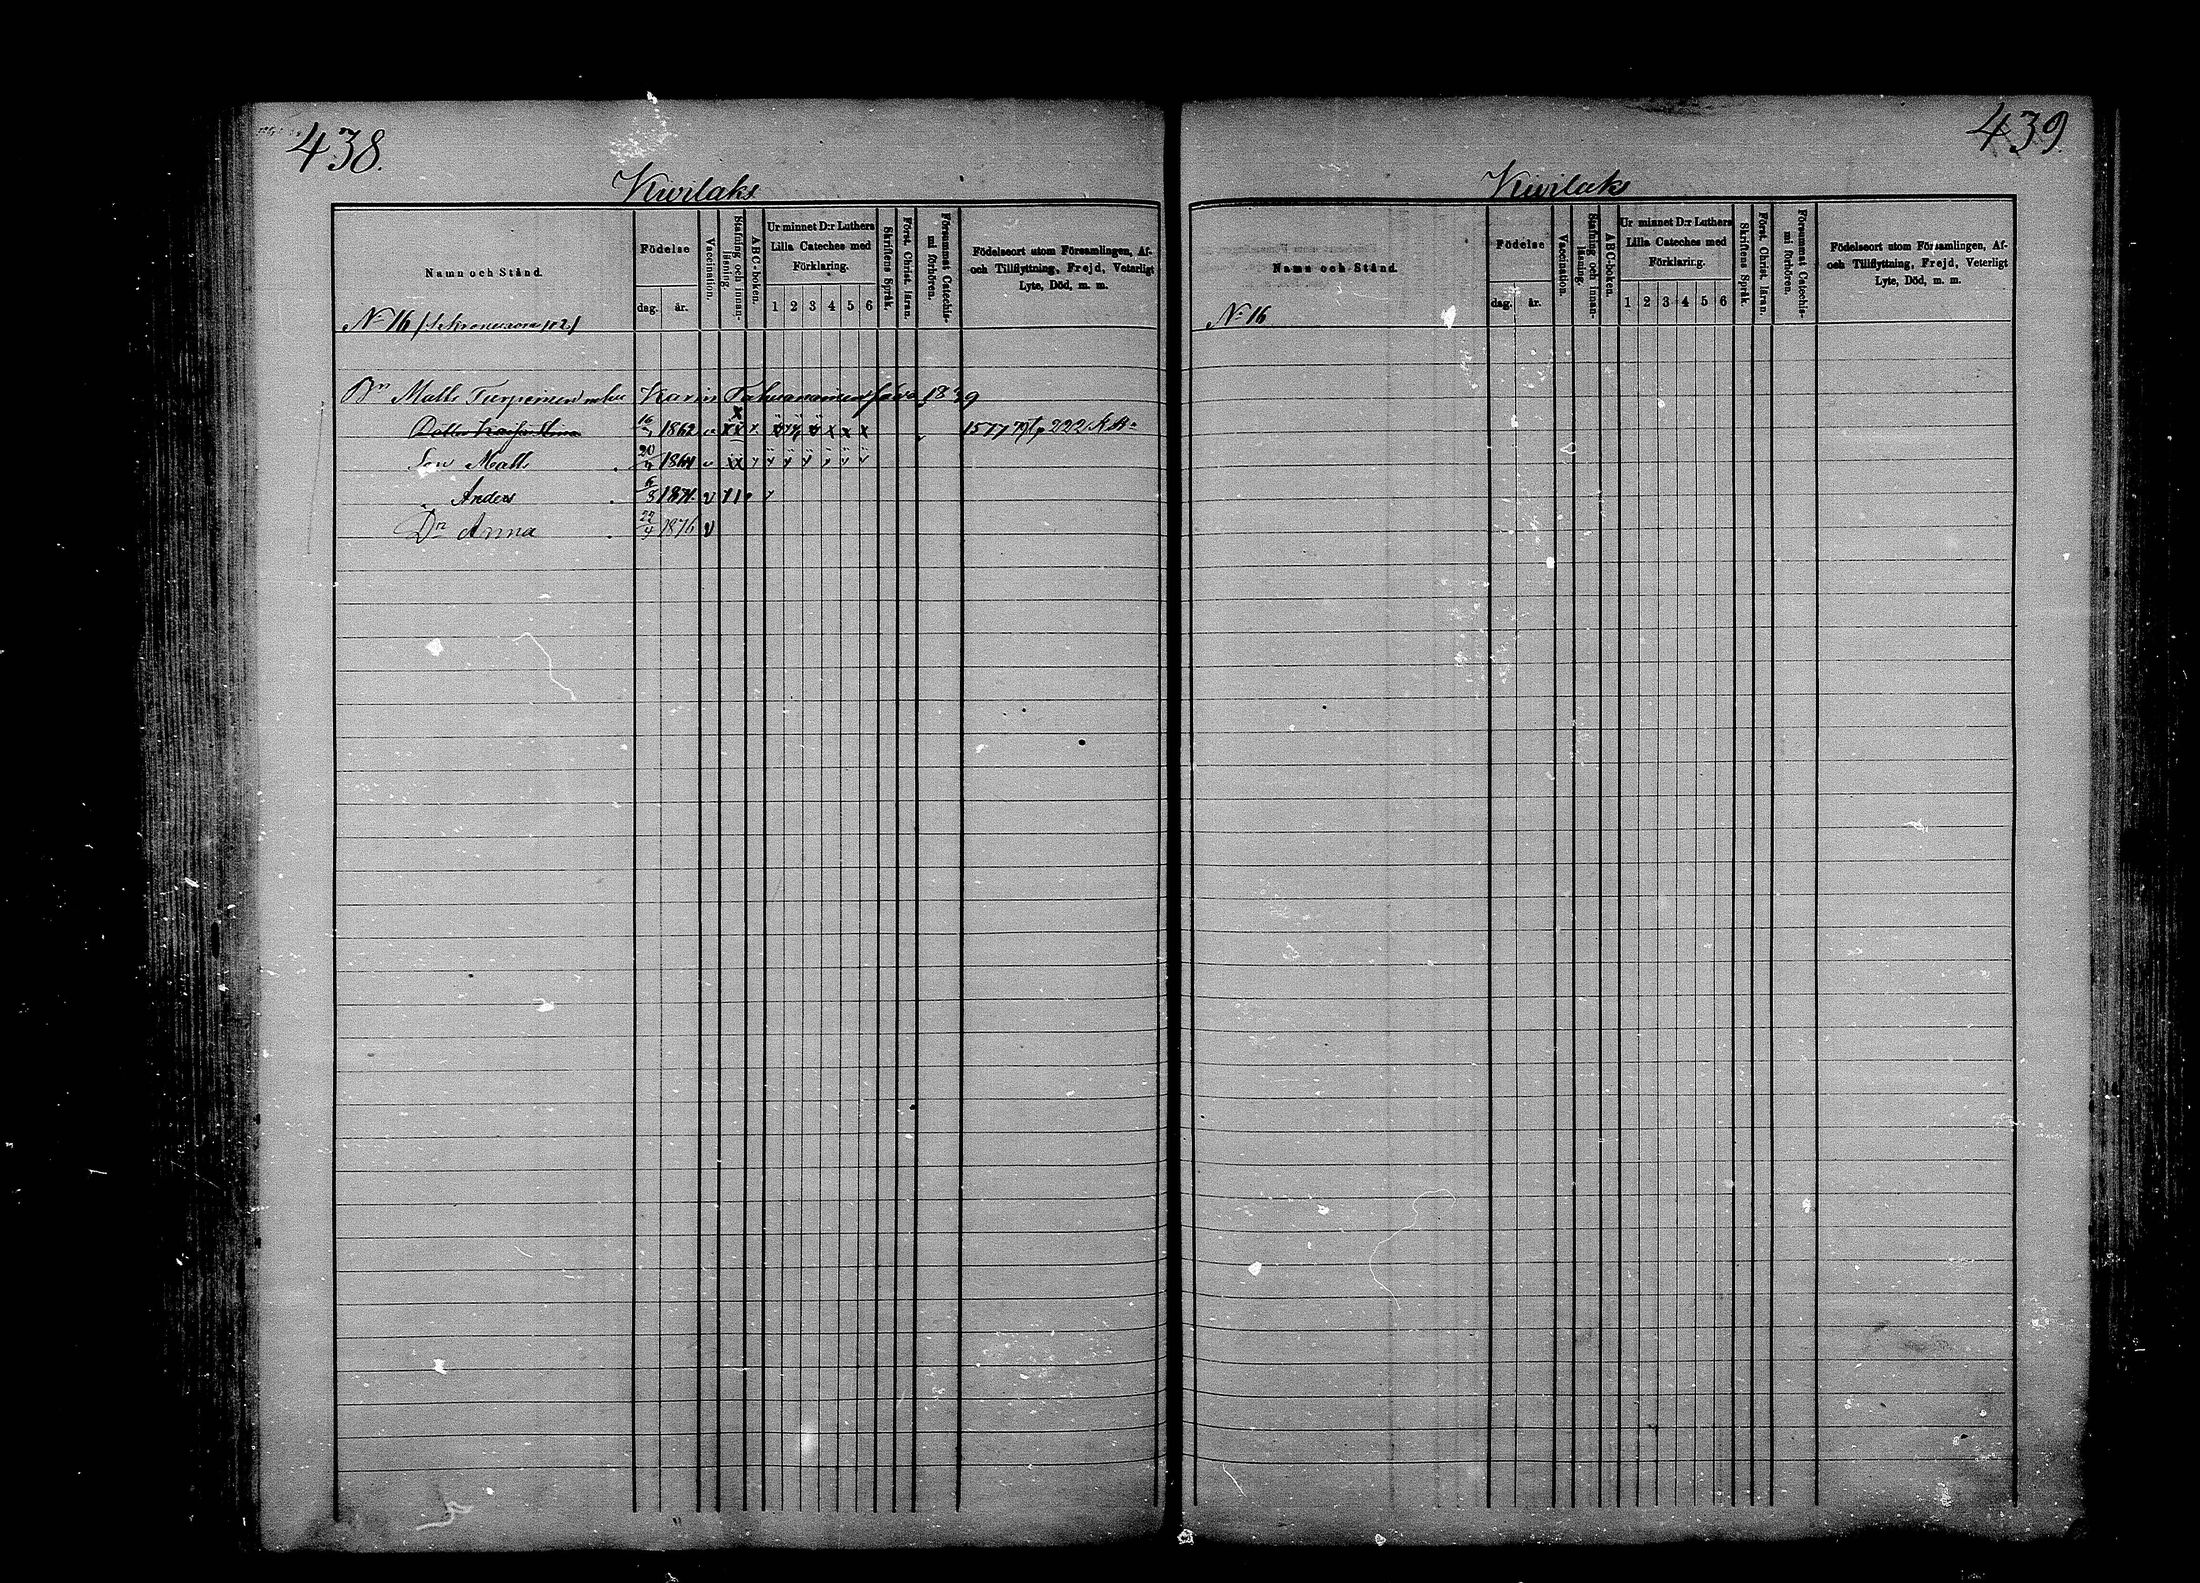 438.
Kivilaks
Namn och Stånd.
Födelse
dag. år.
Vaccination.
Stafning och innanläsning.
ABC-boken.
Ur minnet D:r Luthers Lilla Cateches med Förklaring.
1 2 3 4 5 6
Skriftens Språk.
Först. Christ. läran.
Försummat Catechismi förhören.
Födelseort utom Församlingen, Af-
och Tillflyttning, Frejd, Veterligt
Lyte, Död, m. m.
No 16
Bn Matts Turpeinen Karin 1839
1862 v x x x x x x 222 K.B.
Son Matts 20 1864 v
Anders 1871 v
Dr Anna 22/4 1876 v
439
Kivilaks
Namn och Stånd.
Födelse
dag. år.
Vaccination.
Stafning och innanläsning.
ABC-boken.
Ur minnet D:r Luthers Lilla Cateches med Förklaring.
1 2 3 4 5 6
Skriftens Språk.
Först. Christ. läran.
Försummat Catechismi förhören.
Födelseort utom Församlingen, Af-
och Tillflyttning, Frejd, Veterligt
Lyte, Död, m. m.
No 16